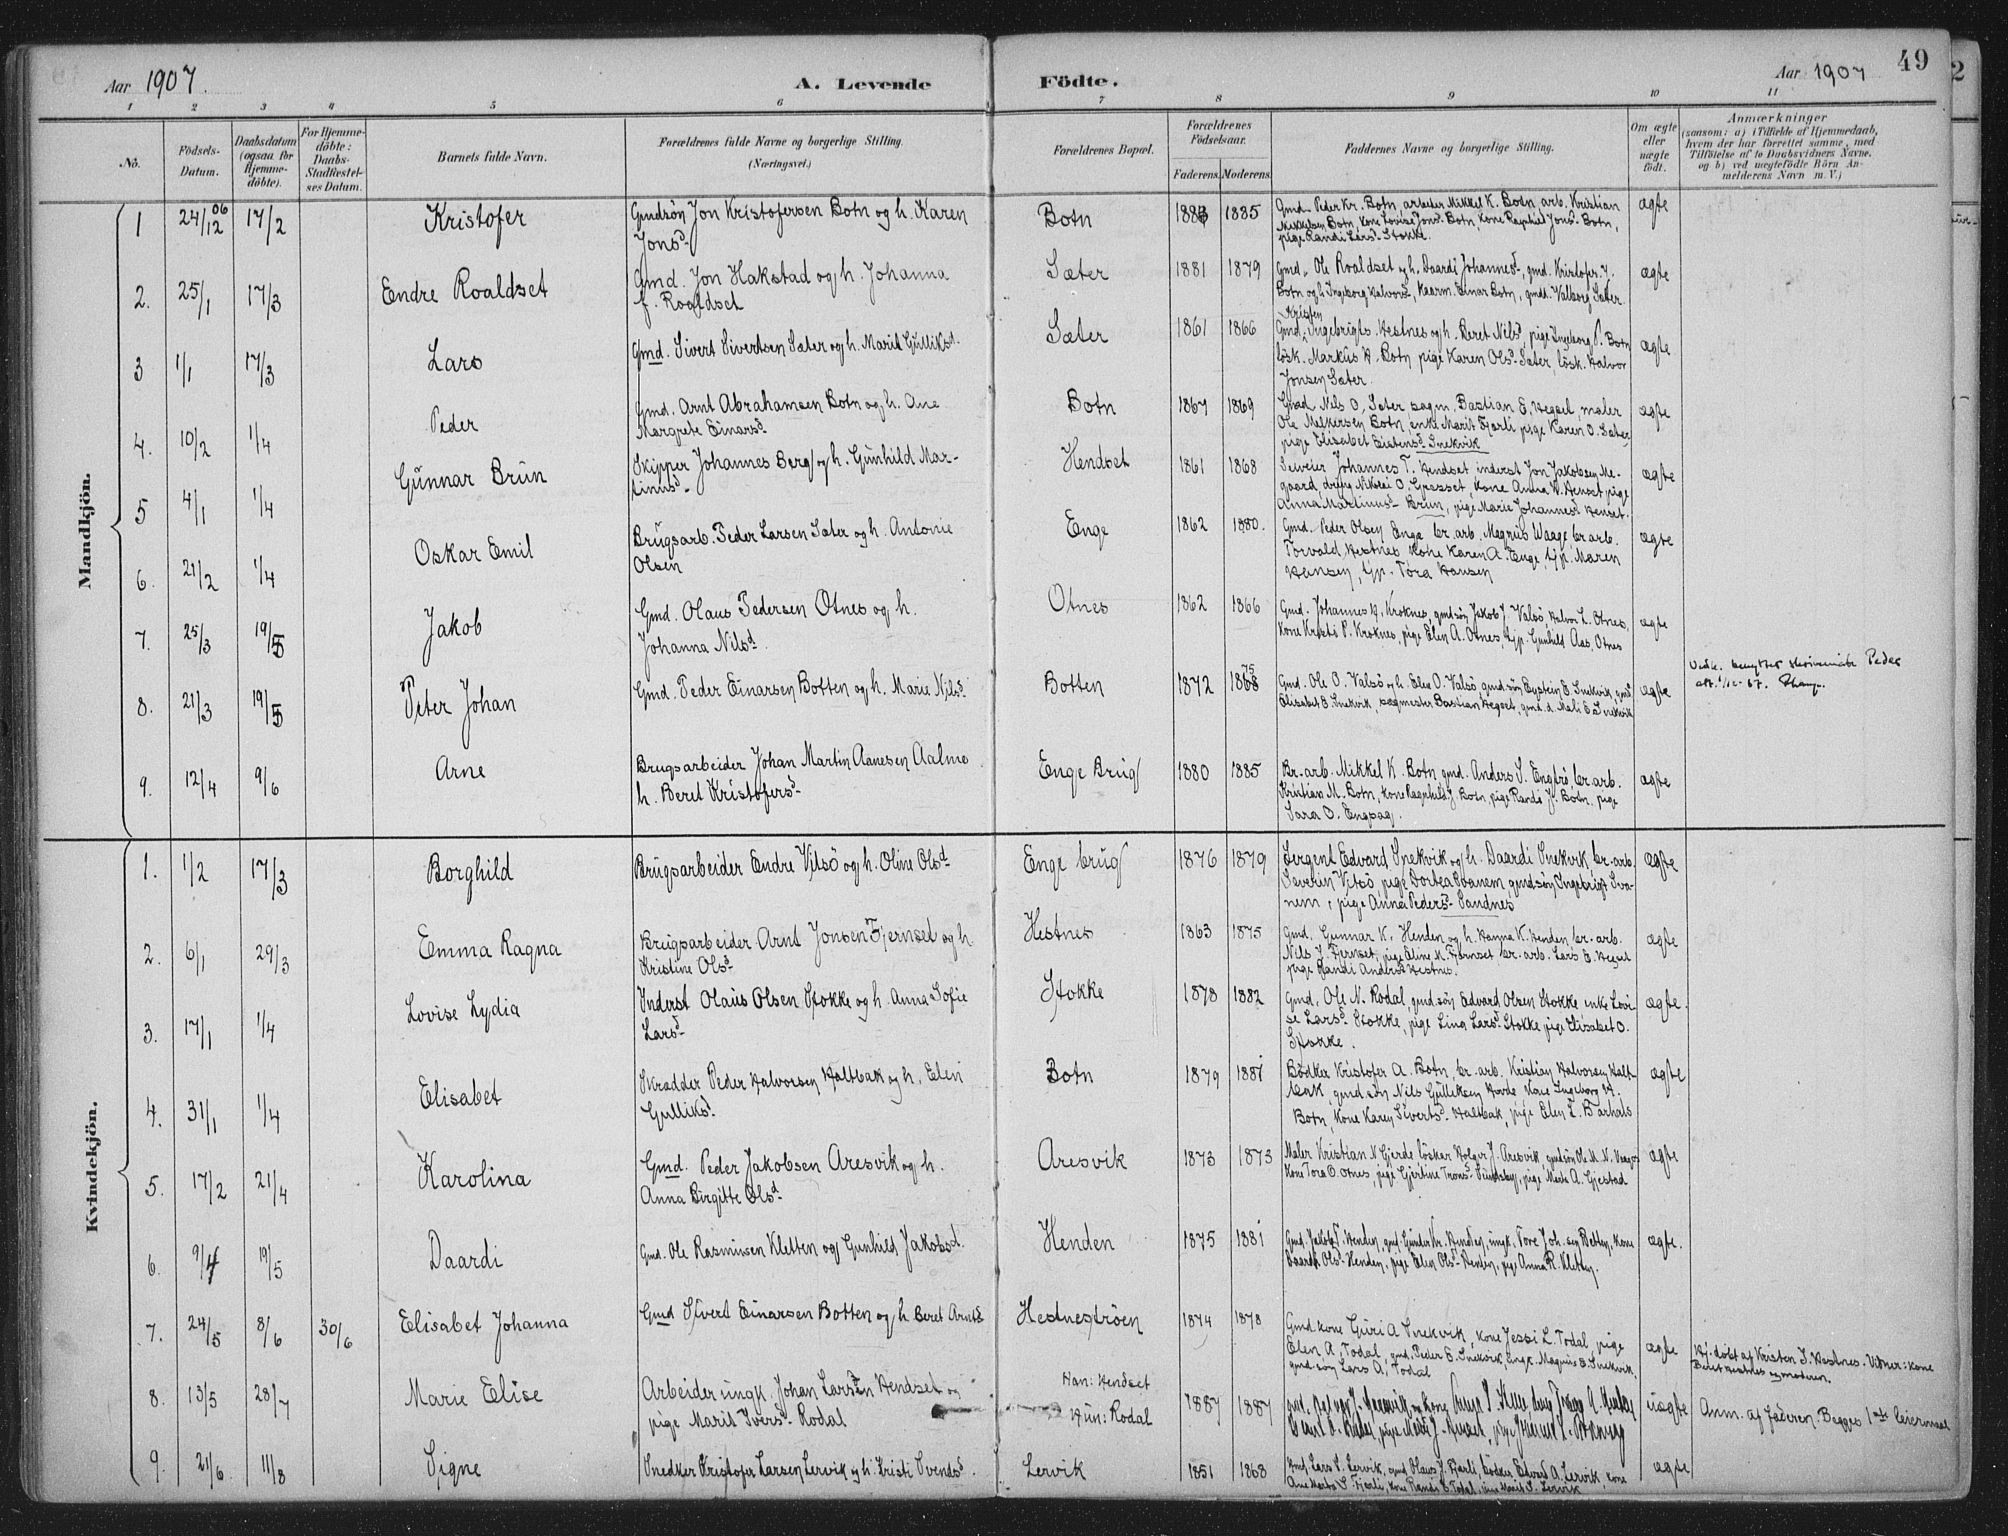 Aar 1907.
A. Levende
Födte.
Aar 1907
49
1 2 3 4 5 6 7 8 9 10 11
No.
Födsels-Datum.
Daabsdatum (ogsaa for Hjemme-döbte).
For Hjemme-döbte: Daabs-Stadfæstel-ses Datum.
Barnets fulde Navn.
Forældrenes fulde Navne og borgerlige Stilling.
(Næringsvei.)
Forældrenes Bopæl.
Forældrenes Födselsaar.
Faderens. Moderens.
Faddernes Navne og borgerlige Stilling.
Om ægte eller uægte födt.
Anmærkninger
(saasom: a) i Tilfælde af Hjemmedaab,
hvem der har forrettet samme, med
Tilföielse af to Daabsvidners Navne,
og b) ved uægtefödte Börn An-
melderens Navn m. V.)
Mandkjön.
1 24/12 06 17/2 Kristofer Gmdsön Jon Kristofersen Botn og h. Karen Jonsd. Botn 1883 1885 Gmd. Peder Kr. Botn, arbeider Mikkel K. Botn, arb. Kristian
Mikkelsen Botn, kone Lovise Jonsd. Botn, kone Ragnhild Jonsd. Botn,
pige Randi Larsd. Stokke. ægte
2. 25/1 17/3 Endre Roaldset Gmd. Jon Hakstad og h. Johanna
f. Roaldset Sæter 1881 1879 Gmd. Ole Roaldset og h. Daardi Johannesd., gmd. Kristofer
Botn og h. Ingeborg Halvorsd., Einar Botn, gmdd. Valborg Sæter. ægte
3 1/1 17/3 Lars Gmd. Sivert Sivertsen Sæter og h. Marit Gulliksd. Sæter 1861 1866 Gmd. Kristen Ingebrigts. Hestnes og h. Beret Nilsd., pige Ingeborg P. Botn
lösk. Markus K. Botn pige Karen Olsd. Sæter, lösk. Halvor
Jonsen Sæter. ægte
4. 10/2 1/4 Peder Gmd. Arnt Abrahamsen Botn og h. Ane
Margrete Einarsd. Botn 1867 1869 Gmd. Nils O. Sæter sagm. Bastian E. Hegset, maler
Ole Melkersen Botn, enke Marit Fjærli pige Karen O. Sæter,
pige Elisabet Eistensd. Snekvik ægte
5 4/1 1/4 Gunnar Brun Skipper Johannes Berg og h. Gunhild Mar-
tinusd. Hendset 1861 1868 Johannes T. Hendset inderst Jon Jakobsen Me-
gaard, dreng Nikolai O. Grasset, kone Anna Henset pige
Anna Martinusd. Brun, pige Marie Johannesd. Henset. ægte
6. 21/2 1/4 Oskar Emil Brugsarb. Peder Larsen Sæter og h. Antonie
Olsen Enge 1862 1880. Gmd. Peder Olsen Enge br. arb. Magnus Waage br. arb.
Torvald Hestnes kone Karen A. Enge, tjp. Maren
Hansen, tjp. Tora Hansen ægte
7. 25/3 19/5 Jakob Gmd. Olaus Pedersen Otnes og h.
Johanna Nilsd. Otnes 1862 1866 Gmd. Johannes H. Kroknes, gmdsön Jakob J. Valsö, Halvor L. Otnes,
kone Kristi P. Kroknes, pige Elen A. Otnes, tjp. Gunhild Aas, Otnes ægte
8. 21/3 19/5 Peter Johan Gmd. Peder Einarsen Botten og h. Marie Nilsd. Botten 1872 1868 75 Gmd. Ole O. Valsö og h. Elen O. Valsö gmdsön Eystein E. Snekvik, gmd
Elisabet E. Snekvik, sagmester Bastian Hegset, gmd. d. Mali E. Snekvik ægte Peder
9. 12/4 9/6 Arne Brugsarbeider Johan Martin Aanesen Aalmo
h. Beret Kristofersd. Enge Brug 1880 1885 Br. arb. Mikkel K. Botn gmd. Anders S. Engtrö, br. arb.
Kristian M. Botn, kone Ragnhild J. Botn, pige Randi J. Botn, pige
Sara O. Engsag. ægte
Kvindekjön.
1. 1/2 17/3 Borghild Brugsarbeider Endre Vilsö og h. Oline Olsd. Enge brug 1876 1879 Sergent Edvard Snekvik og h. Daardi Snekvik br. arb.
Severin Vilsö, pige Dortea Svanem gmdsön Ingebrigt Sva-
nem, pige Anna Pedersd. Sandnes ægte
2. 6/1 29/3 Emma Ragna Brugsarbeider Arnt Jonsen Fjernset og h.
Kristine Olsd. Hestnes 1863 1875 Gmd. Gunnar K. Henden og h. Hanna K. Henden br. arb.
Nils J. Fjernset, pige Eline K. Fjernset br. arb. Lars E. Hegset
pige Randi Andersd. Hestnes. ægte
3. 17/1 1/4 Lovise Lydia Inderst Olaus Olsen Stokke og h. Anna Sofie
Larsd. Stokke 1878 1882 Gmd. Ole N. Rodal, gmd.sön Edvard Olsen Stokke enke Lovi-
se Larsd. Stokke, pige Lina Larsd. Stokke pige Elisabet O.
Stokke. ægte.
4. 31/1 1/4 Elisabet Skrædder Peder Halvorsen Haltbak og h. Elen
Gulliksd. Botn 1879 1881 Bödker Kristofer A. Botn, br. arb. Kristian Halvorsen Halt-
bak, gmd sön Nils Gulliksen Hovde kone Ingeborg H.
Botn, kone Karen Sivertsd. Haltbak, pige Elen L. Barhals ægte
5. 17/2 21/4 Karolina Gmd. Peder Jakobsen Aresvik og h.
Anna Birgitte Olsd. Aresvik 1873 1873 Maler Kristian N. Gjerde lösker Holger J. Aresvik, gmdsön Ole M. N.
Kone Tora O. Otnes, pige Gjertine Tronsd. pige Marta A. Gjestad ægte
6. 9/4 19/5 Daardi Gmd. Ole Rasmussen Kletten og Gunhild Jakobsd. Henden 1875 1881 Gmd. Jakob T. Henden, gmd. Gunder Kr. Henden, ungk. Tore Joh.sen Kletten, kone
Daardi Olsd. Henden, pige Elen Olsd. Henden, pige Anna R. Kletten. ægte.
7. 24/5 8/6 30/6 Elisabet Johanna Gmd Sivert Einarsen Botten og h. Beret Arntsd. Hestneströen 1874 1878 Gmd kone Guri A Snekvik, kone Jessi L. Todal, pige
Elen A. Todal, gmd. Peder E. Snekvik, ungk. Magnus E. Snekvik,
gmd. sön Lars A. Todal ægte Hj. döbt af Kristen I. Hestnes. Vitner: kone
Beret Hestnes og moderen.
8. 13/5 28/7 Marie Elise Arbeider ungk. Johan Larsen Hendset og
pige Marit Iversd. Rodal Han: Hendset
Hun: Rodal 1887 1887 uægte Anm. af faderen. Begges 1ste leiermaal
9. 21/6. 11/8 Signe Snedker Kristofer Larsen Lervik og h. Kristi Svendsd. Lervik 1851 1868 Gmd. Lars K. Lervik, gmd. Olaus J. Fjærli, bödker Edvard A. Lervik, kone
Ane Marta S. Fjærli, kone Randi E. Todal, Marit S. Lervik ægte